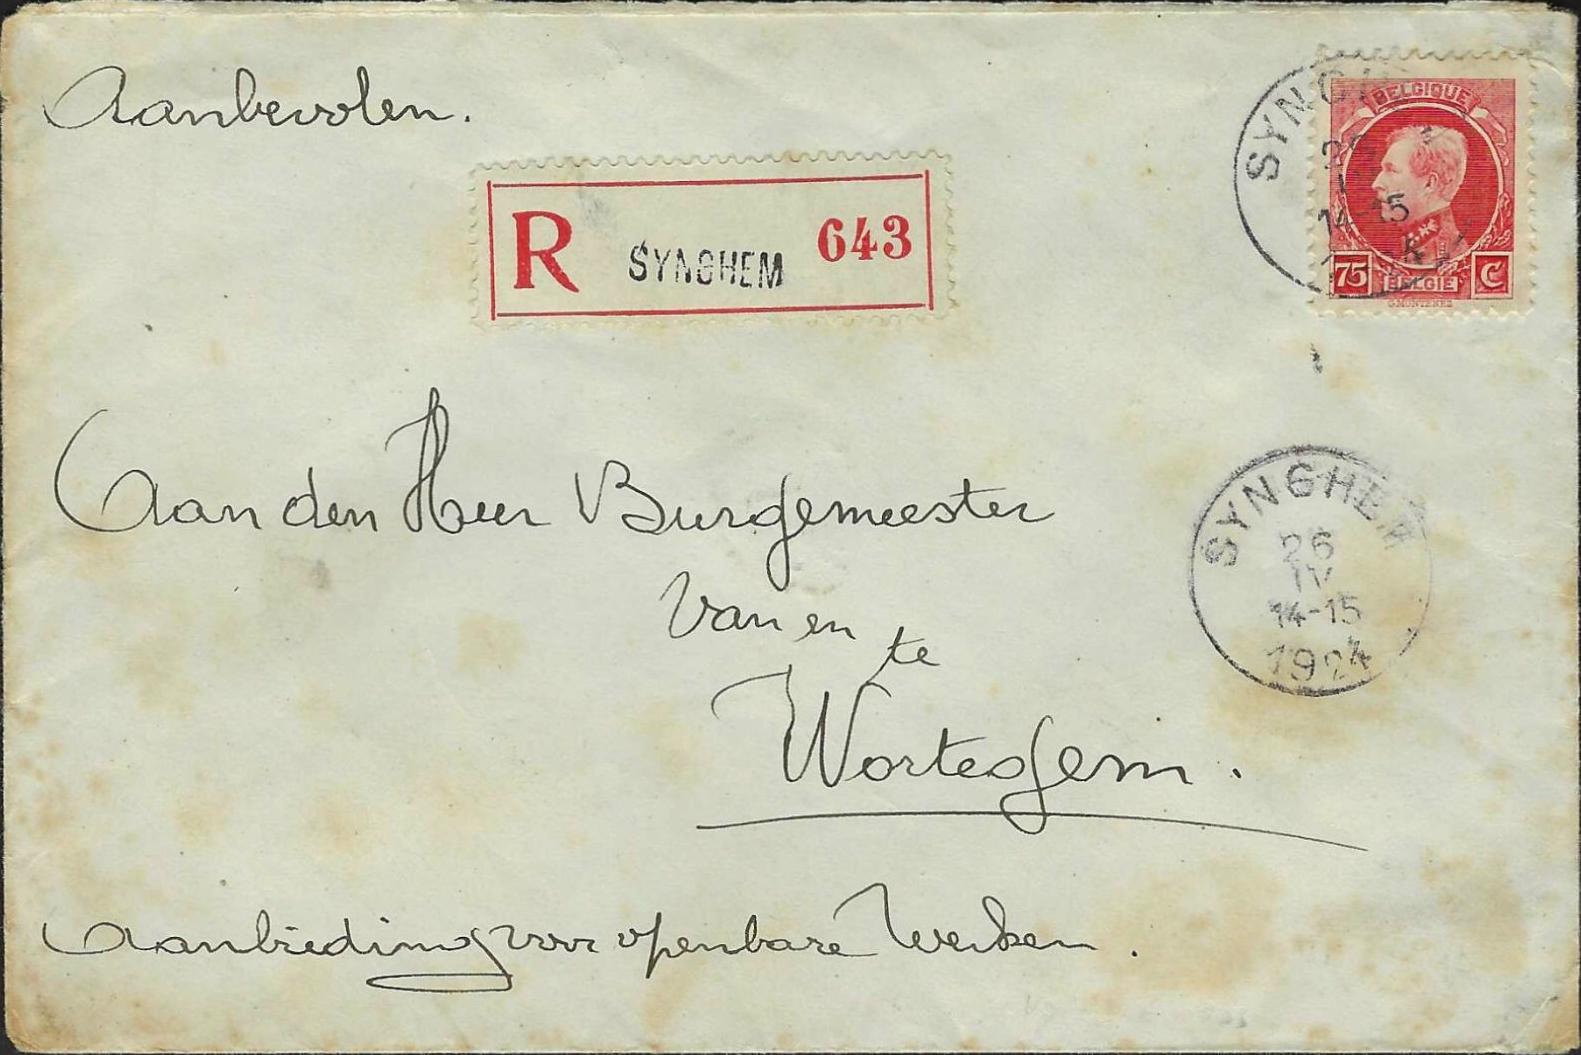 Aanbevolen.
R SYNGHEM 643
BELGIQUE
75 BELGIE C
G.MONTENEZ
SYNGH
26
14-15
Aan den Heer Burgemeester
van en te
Wortegem.
SYNGHEM
26
IV
14-15
1924
Aanbieding voor openbare Werken.